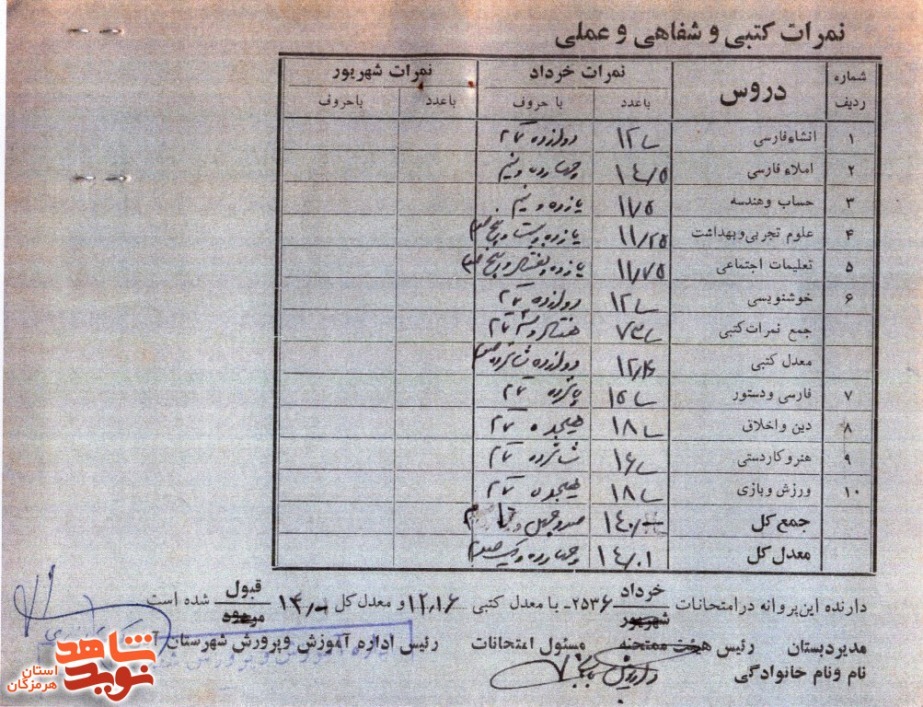 نمرات کتبی و شفاهی و عملی
شماره ردیف دروس نمرات خرداد نمرات شهریور
باعدد با حروف باعدد باحروف
۱ انشاءفارسی ۱۲ دوازده تمام
۲ املاء فارسی ۱۴/۵ چهارده و نیم
۳ حساب وهندسه ۱۱/۵ یازده و نیم
۴ علوم تجربی وبهداشت ۱۱/۲۵ یازده و بیست و پنج صدم
۵ تعلیمات اجتماعی ۱۱/۷۵ یازده و هفتاد و پنج صدم
۶ خوشنویسی ۱۲ دوازده تمام
جمع نمرات کتبی ۷۳ هفتاد و سه تمام
معدل کتبی ۱۲/۱۶ دوازده شانزده صدم
۷ فارسی ودستور ۱۵ پانزده تمام
۸ دین واخلاق ۱۸ هیجده تمام
۹ هنر و کاردستی ۱۶ شانزده تمام
۱۰ ورزش وبازی ۱۸ هیجده تمام
جمع کل ۱۴۰/ صد و چهل و
معدل کل ۱۴/۰۱ چهارده و یک صدم
دارنده این پروانه در امتحانات خرداد شهریور ۲۵۳۶ـ با معدل کتبی ۱۲،۱۶ و معدل کل ۱۴ قبول مردود شده است
مدیردبستان رئیس هیئت ممتحنه مسئول امتحانات رئیس اداره آموزش وپرورش شهرستان
نام ونام خانوادگی
نوید شاهد
استان هرمزگان